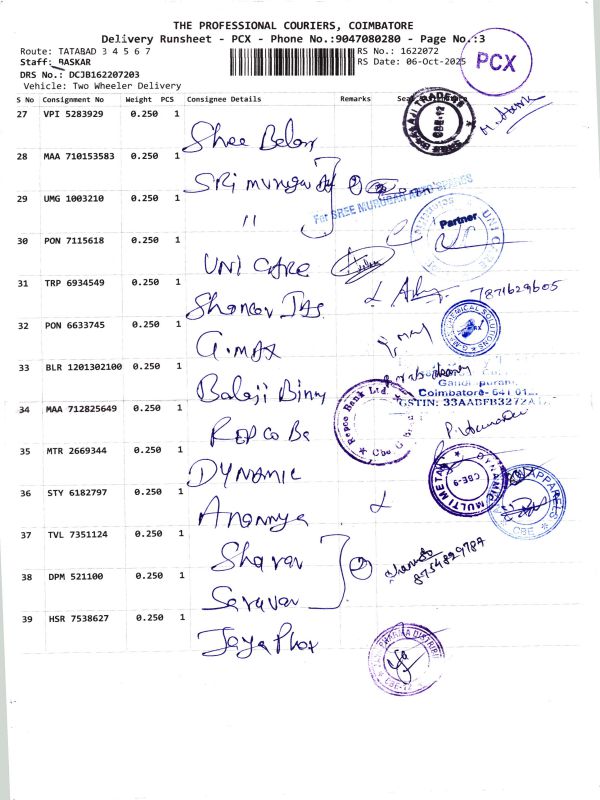 THE PROFESSIONAL COURIERS, COIMBATORE
Delivery Runsheet - PCX - Phone No.:9047080280 - Page No.:3
Route: TATABAD 3 4 5 6 7
RS No.: 1622072
Staff: BASKAR
RS Date: 06-Oct-2025
PCX
DRS No.: DCJB162207203
Vehicle: Two Wheeler Delivery
S No Consignment No Weight PCS Consignee Details Remarks
27 VPI 5283929 0.250 1
Shree
28 MAA 710153583 0.250 1
Sri Murugan
For SREE MURUGAN
29 UMG 1003210 0.250 1
"
Partner
30 PON 7115618 0.250 1
UNI CARE
31 TRP 6934549 0.250 1
7871629605
32 PON 6633745 0.250 1
G.MAX
33 BLR 1201302100 0.250 1
Balaji
Coimbatore- 641 01
GSTIN: 33AABFB3272A
34 MAA 712825649 0.250 1
REPCO
Repco Bank Ltd.
35 MTR 2669344 0.250 1
DYNAMIC
DYNAMIC MULTI METAL
CBE-9
36 STY 6182797 0.250 1
Anannya
APPARELS
CBE
37 TVL 7351124 0.250 1
Sharav
2
8754829787
38 DPM 521100 0.250 1
Saravan
39 HSR 7538627 0.250 1
Jaya